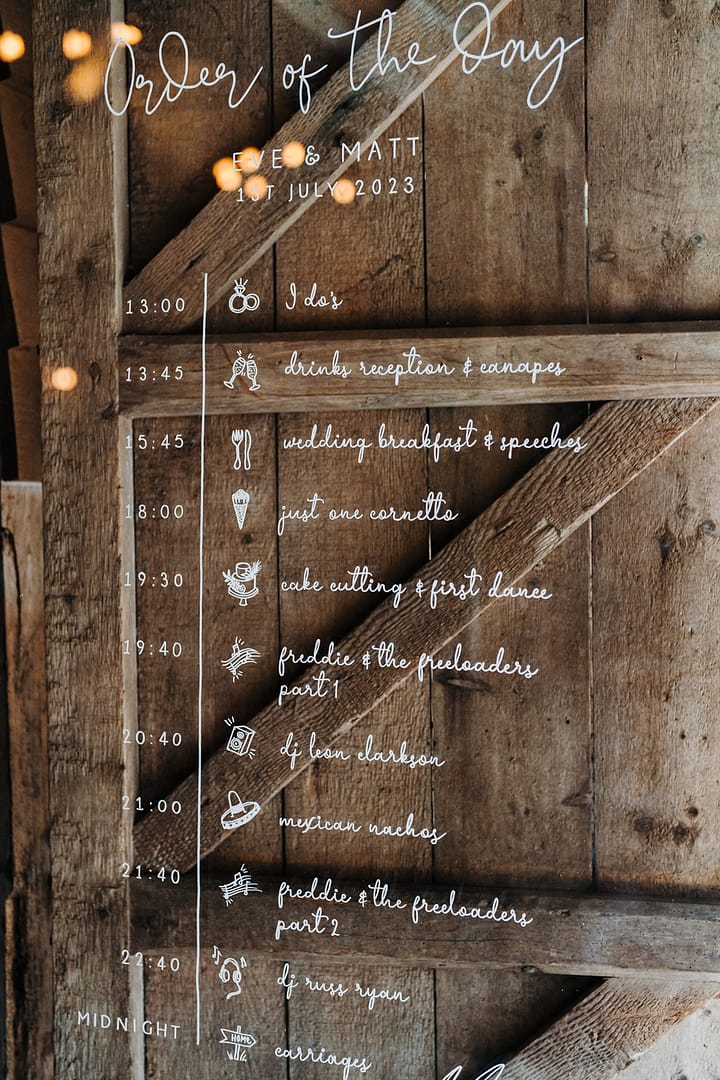 Order of the Day
EVE & MATT
1ST JULY 2023
13:00 I do's
13:45 drinks reception & canapes
15:45 wedding breakfast & speeches
18:00 just one cornetto
19:30 cake cutting & first dance
19:40 freddie & the freeloaders
part 1
20:40 dj leon clarkson
21:00 mexican nachos
21:40 freddie & the freeloaders
part 2
22:40 dj russ ryan
HOME
MIDNIGHT carriages